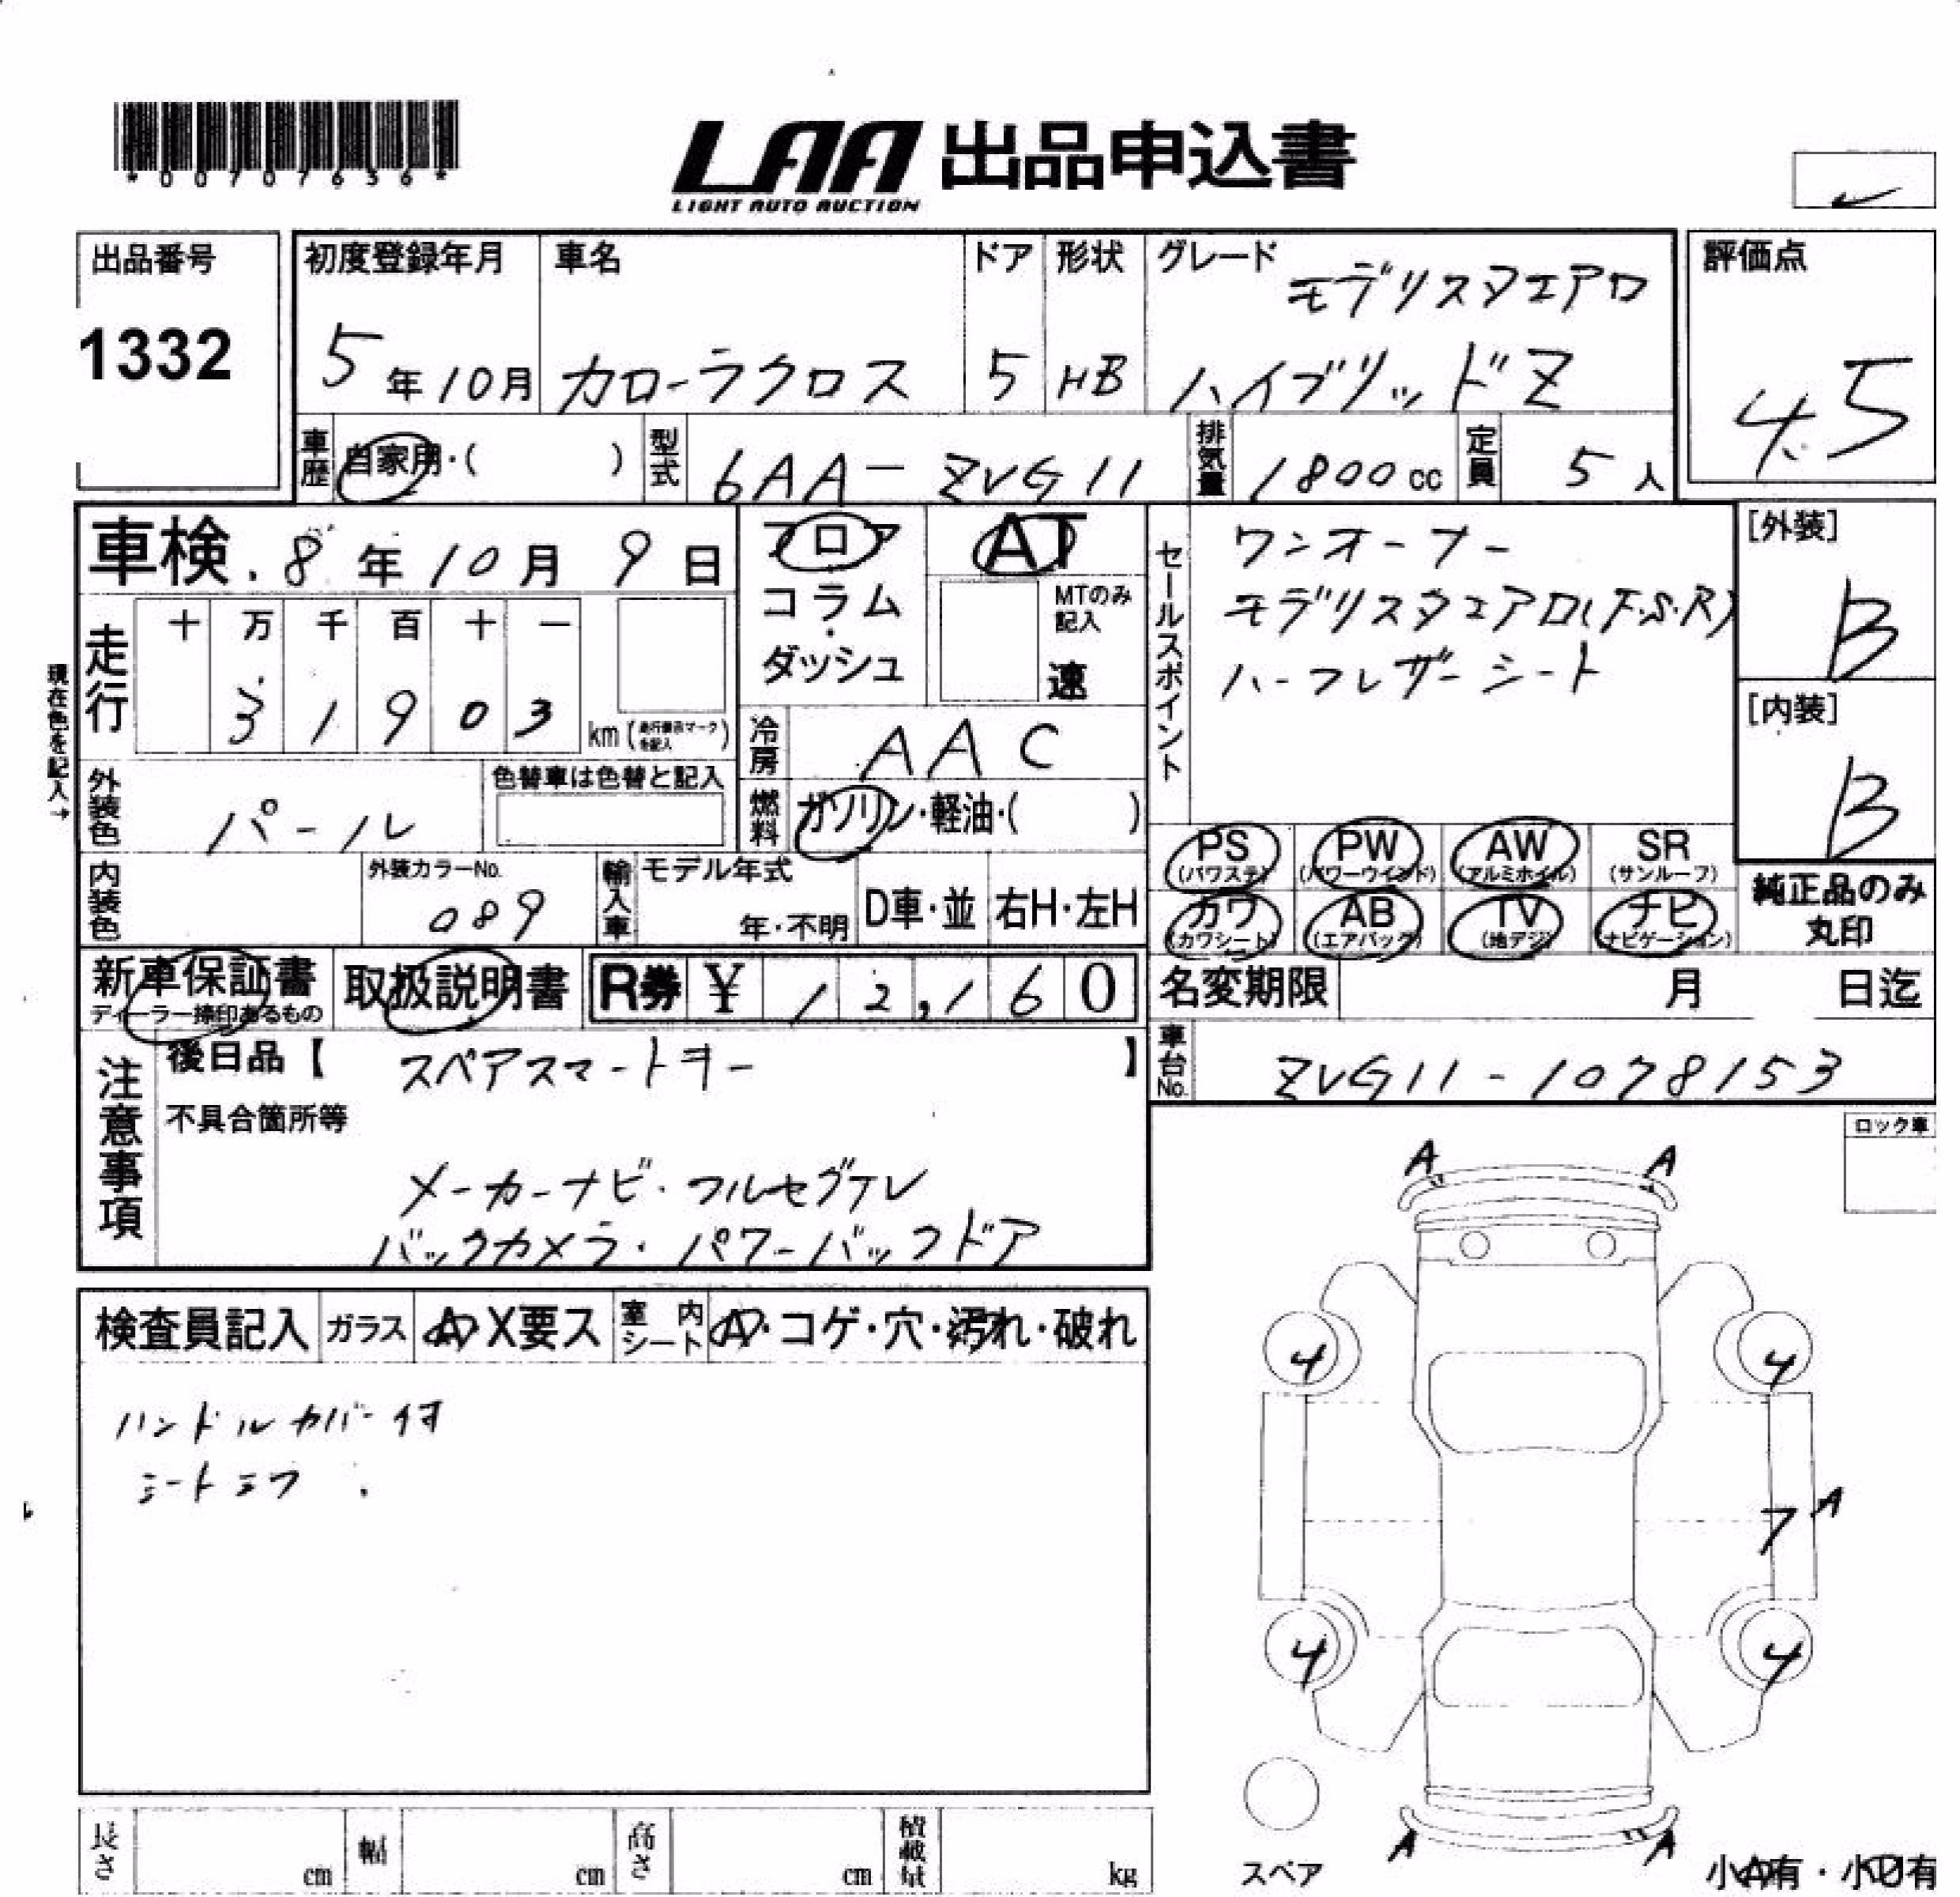 *00707636*
LAA 出品申込書
LIGHT AUTO AUCTION
出品番号
1332
初度登録年月
5年10月
車名
カローラクロス
ドア
5
形状
HB
グレード
モデリスタエアロ
ハイブリッドZ
評価点
4.5
車歴
自家用・( )
型式
6AA-ZVG11
排気量
1800cc
定員
5人
車検 8年10月9日
フロア
コラム
・
ダッシュ
AT
MTのみ
記入
速
セールスポイント
ワンオーナー
モデリスタエアロ(F.S.R)
ハーフレザーシート
[外装]
B
[内装]
B
現在色を記入→
走行
十 万 千 百 十 一
3 1 9 0 3
km
冷房
AAC
外装色
パール
色替車は色替と記入
燃料
ガソリン・軽油・( )
PS
(パワステ)
PW
(パワーウインド)
AW
(アルミホイル)
SR
(サンルーフ)
カワ
(カワシート)
AB
(エアバック)
TV
(地デジ)
ナビ
(ナビゲーション)
純正品のみ
丸印
内装色
外装カラーNo.
089
輸入車
モデル年式
年・不明
D車・並
右H・左H
新車保証書
ディーラー捺印あるもの
取扱説明書
R券 ¥ 12,160
名変期限 月 日迄
車台No.
ZVG11-1078153
注意事項
後日品【 スペアスマートキー 】
不具合箇所等
メーカーナビ・フルセグTV
バックカメラ・パワーバックドア
ロック車
検査員記入
ガラス
A・X要ス
室内
シート
A・コゲ・穴・汚れ・破れ
ハンドルカバー付
A A
4 4
7 A
4 4
A A
スペア
小A有・小U有
長さ cm
幅 cm
高さ cm
積載量 kg